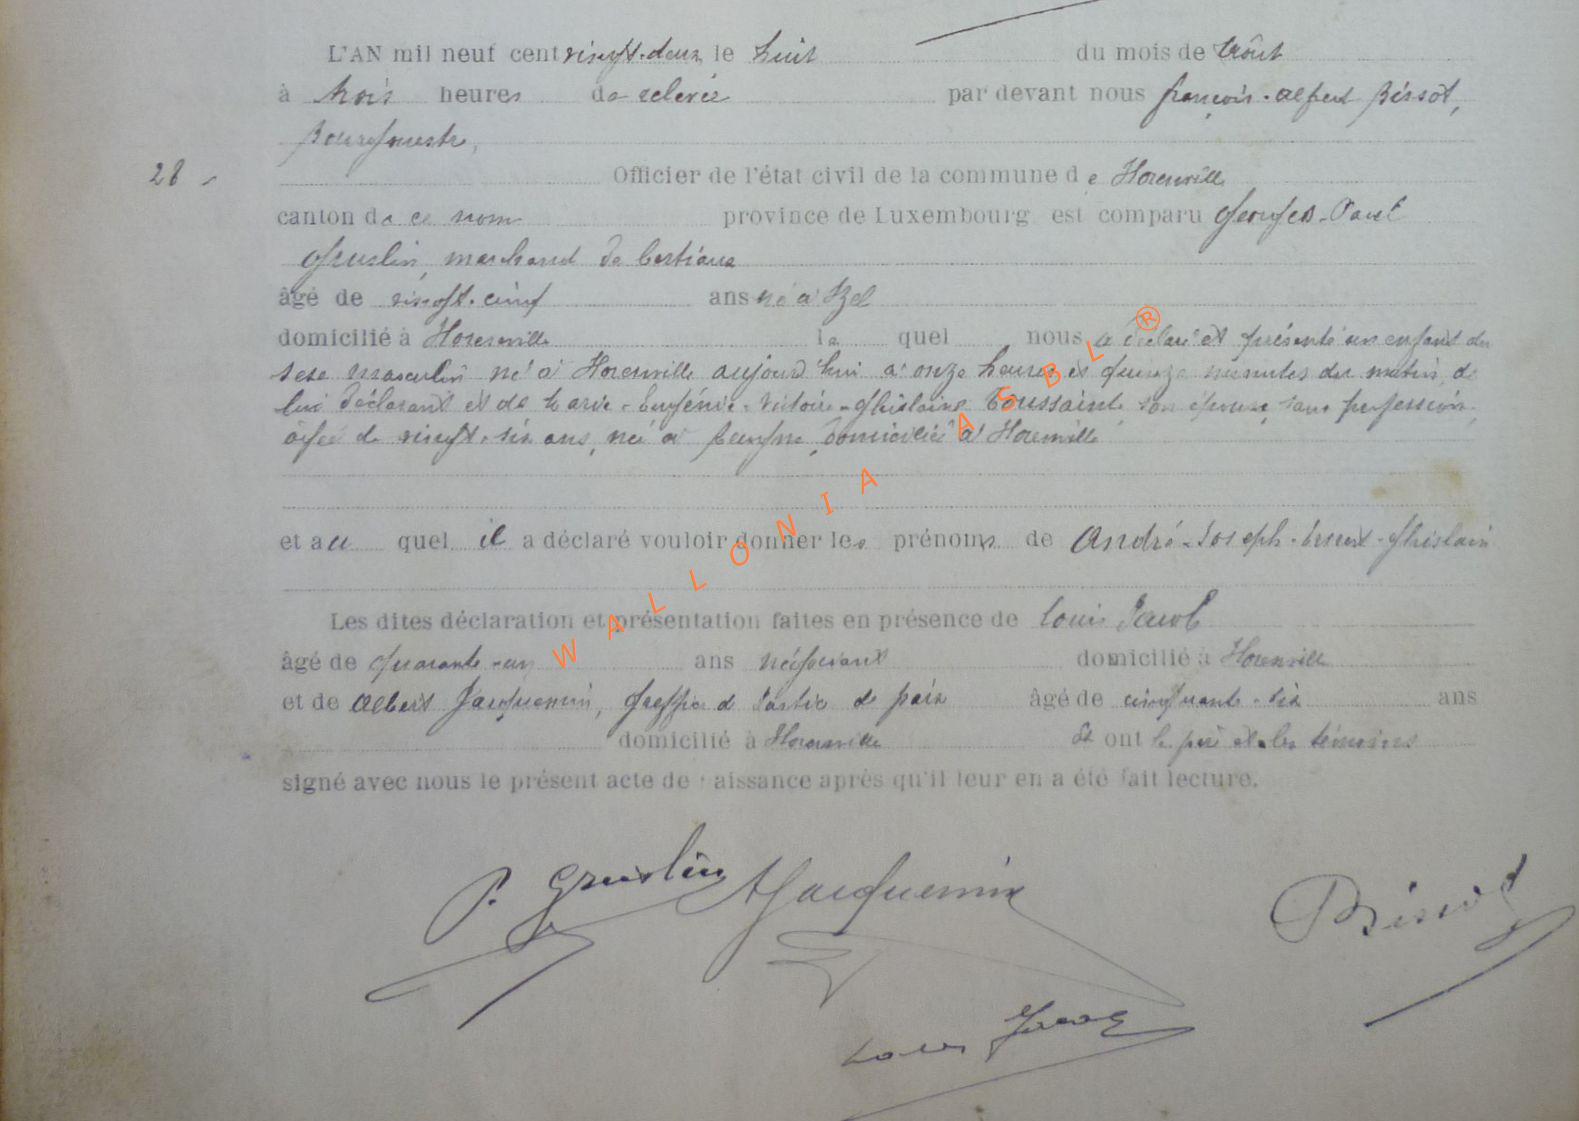 L'AN mil neuf cent vingt-deux le huit du mois de Août
à trois heures de relevée par devant nous françois-alfred Bissot,
Bourgmestre,
28 Officier de l'état civil de la commune de Florenville
canton de ce nom province de Luxembourg est comparu Georges-Paul
Gruslin, marchand de bestiaux
âgé de vingt-cinq ans né à Izel
domicilié à Florenville le quel nous a déclaré et présenté un enfant du
sexe masculin né à Florenville aujourd'hui à onze heures et quinze minutes du matin, de
lui déclarant et de Marie-Eugénie-Victoire-Ghislaine Toussaint, son épouse, sans profession,
âgée de vingt-six ans, née à domiciliée à Florenville
et au quel il a déclaré vouloir donner les prénoms de André-Joseph-Ernest-Ghislain
Les dites déclaration et présentation faites en présence de Louis Jacob
âgé de quarante-un ans négociant domicilié à Florenville
et de Albert Jacquemin, greffier de Justice de paix âgé de cinquante-six ans
domicilié à Florenville Et ont le père et les témoins
signé avec nous le présent acte de naissance après qu'il leur en a été fait lecture.
P. Gruslin AJacquemin Bissot
Louis Jacob
WALLONIA ASBL ®